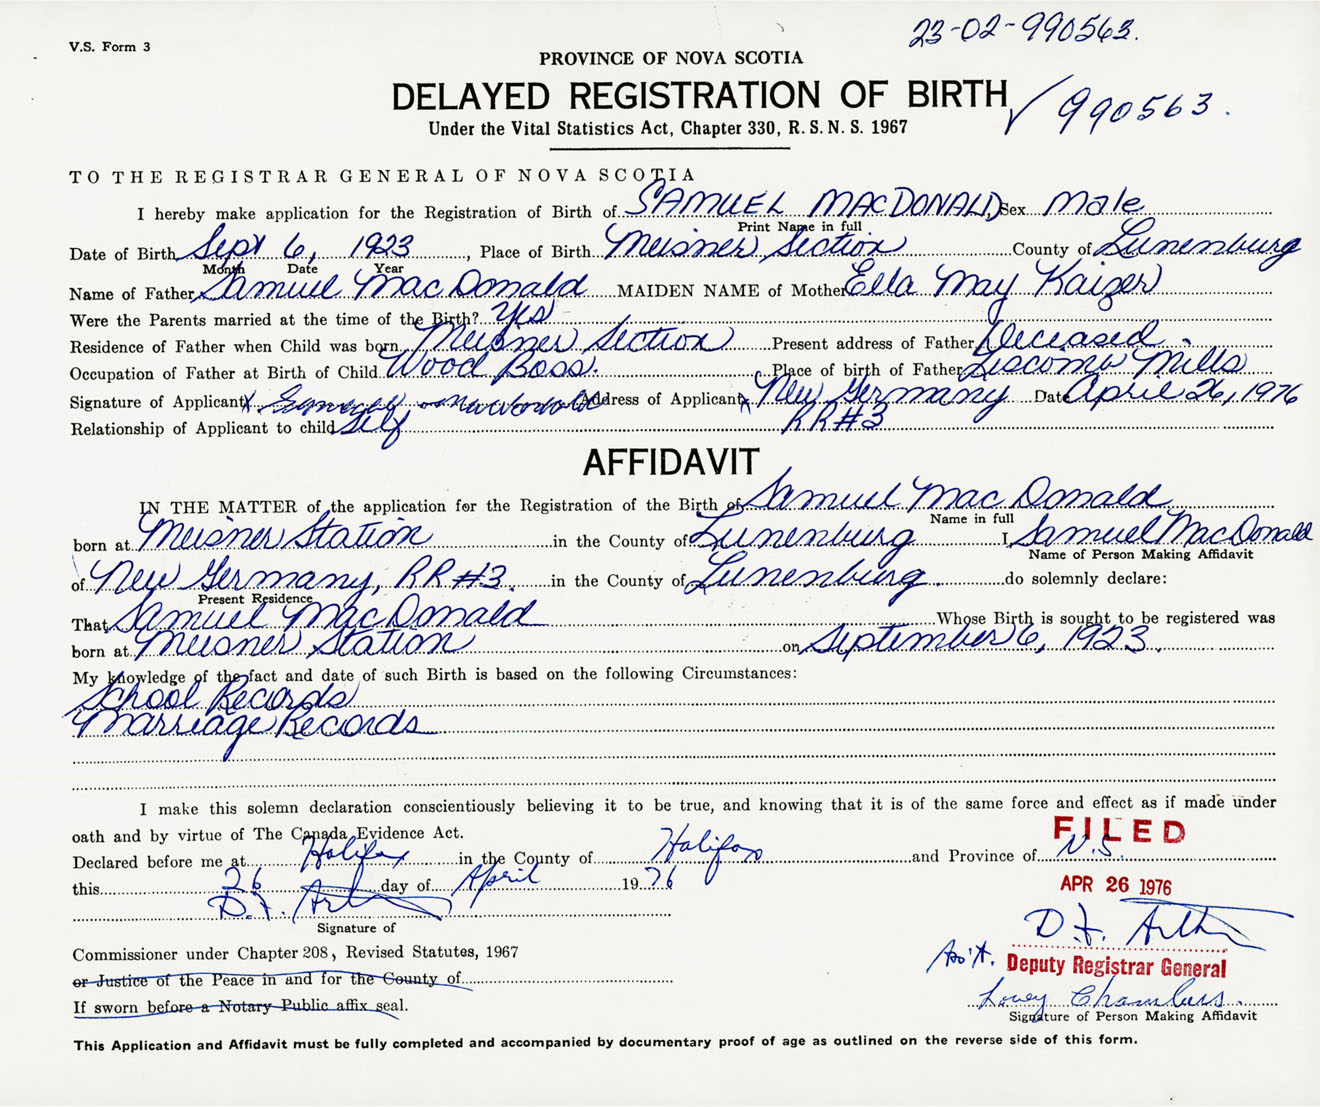 23-02-990563.
V.S. Form 3
PROVINCE OF NOVA SCOTIA
DELAYED REGISTRATION OF BIRTH
✓ 990563.
Under the Vital Statistics Act, Chapter 330, R.S.N.S. 1967
TO THE REGISTRAR GENERAL OF NOVA SCOTIA
I hereby make application for the Registration of Birth of SAMUEL MACDONALD, Sex Male
Print Name in full
Date of Birth Sept 6, 1923, Place of Birth Meisner Section County of Lunenburg
Month Date Year
Name of Father Samuel MacDonald MAIDEN NAME of Mother Ella May Kaizer
Were the Parents married at the time of the Birth? Yes
Residence of Father when Child was born Meisner Section Present address of Father Deceased.
Occupation of Father at Birth of Child Wood Boss. Place of birth of Father Liscomb Mills
Signature of Applicant X Address of Applicant X New Germany Date April 26, 1976
Relationship of Applicant to child Self RR#3
AFFIDAVIT
IN THE MATTER of the application for the Registration of the Birth of Samuel MacDonald
Name in full
born at Meisner Station in the County of Lunenburg I, Samuel MacDonald
Name of Person Making Affidavit
of New Germany, RR#3. in the County of Lunenburg. do solemnly declare:
Present Residence
That Samuel MacDonald Whose Birth is sought to be registered was
born at Meisner Station on September 6, 1923.
My knowledge of the fact and date of such Birth is based on the following Circumstances:
School Records
Marriage Records
I make this solemn declaration conscientiously believing it to be true, and knowing that it is of the same force and effect as if made under
oath and by virtue of The Canada Evidence Act.
FILED
Declared before me at Halifax in the County of Halifax and Province of N.S.
this 26 day of April 1976
APR 26 1976
D.F.
Signature of
D.F.
Commissioner under Chapter 208, Revised Statutes, 1967
Ass't. Deputy Registrar General
or Justice of the Peace in and for the County of
Chambers.
If sworn before a Notary Public affix seal.
Signature of Person Making Affidavit
This Application and Affidavit must be fully completed and accompanied by documentary proof of age as outlined on the reverse side of this form.